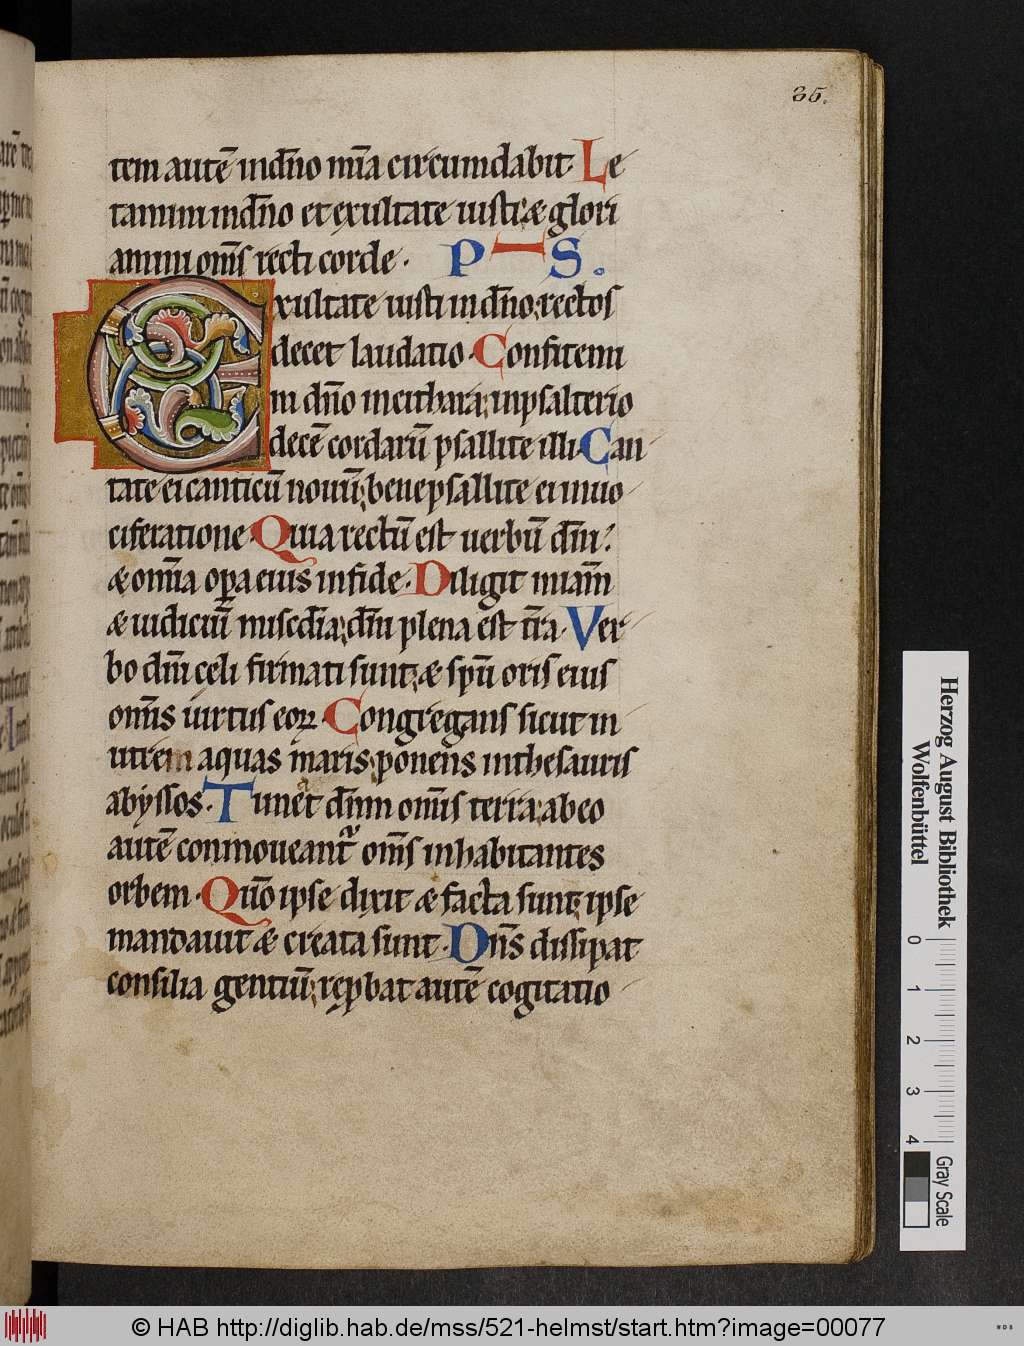 35.
tem autē in dn̄o mīa circumdabit. Le
tamini in dn̄o et exultate iusti: & glori
amini om̄s recti corde. PS.
Exultate iusti in dn̄o: rectos
decet laudatio. Confitemi
ni dn̄o in cithara: in psalterio
decē cordarū psallite illi. Can
tate ei canticū nouū: bene psallite ei in uo
ciferatione. Quia rectū est uerbū dn̄i:
& om̄ia oꝑa eius in fide. Diligit mi̅am
& iudiciū: misc̄dia dn̄i plena est t̄ra. Ver
bo dn̄i cęli firmati sunt: & sp̄u oris eius
om̄is uirtus eoꝝ. Congregans sicut in
utrem aquas maris: ponens in thesauris
abyssos. Timeat dn̄m om̄is terra: ab eo
autē conmoueant᷑ om̄s inhabitantes
orbem. Qūo ipse dixit & facta sunt: ipse
mandauit & creata sunt. Dn̄s dissipat
consilia gentiū: reꝓbat autē cogitatio
Herzog August Bibliothek
Wolfenbüttel
0 1 2 3 4
Gray Scale
© HAB http://diglib.hab.de/mss/521-helmst/start.htm?image=00077